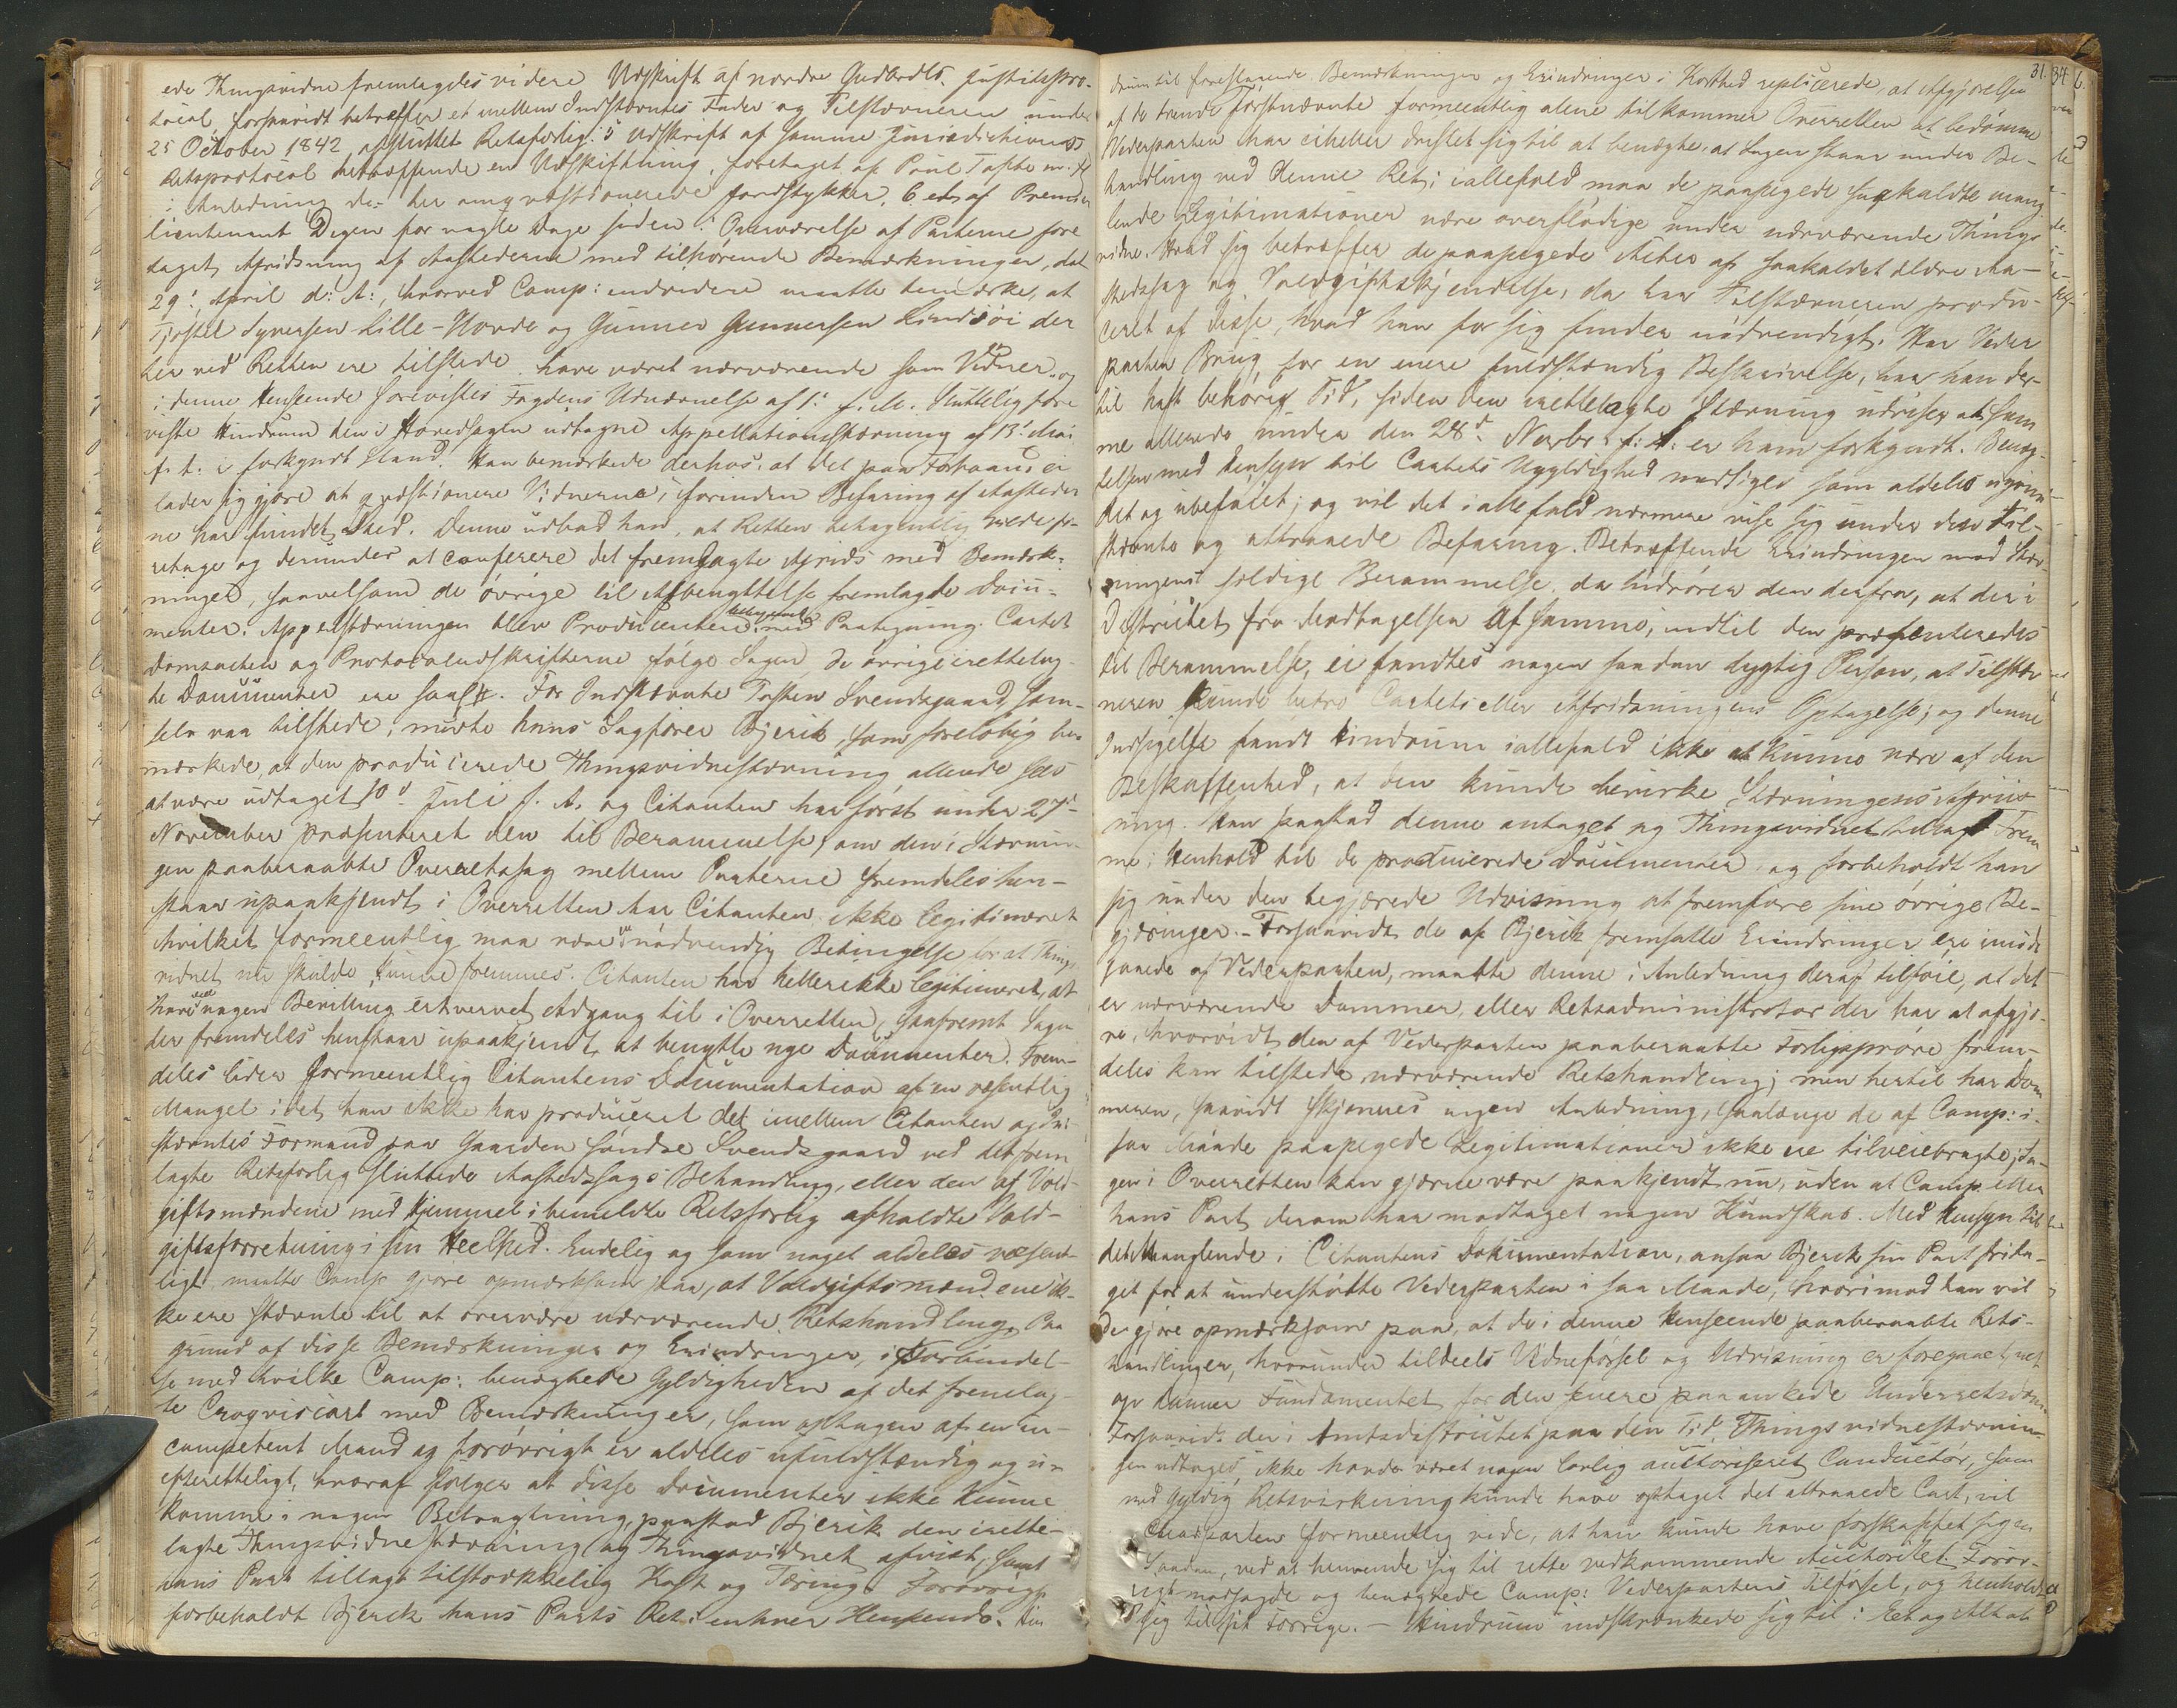 ede Thingsvidne fremlagdes videre Udskrift af nordre Justitspro-
tocol forsaavidt betræffer et mellem Indstævntes Fader og Tilstævneren under
25 October 1842 afsluttet Retsforlig: Udskrift af samme Jurisdictions
Retsprotocol betræffende en Udskiftning, foretaget af Poul m. fl.
i Anledning de her omqvæstionerede Jordstykker, 6 en af Premier
lieutenant Dizen for nogle Dage siden i Overværelse af Parterne fore
taget Afridsning af Aastederne med tilhørende Bemærkninger, dat
29' April d: A:, hvorved Comp: endvidere maatte bemærke, at
Tjøstel Syversen Lille-Hovde og Gunner Gunnersen Lindsøi der
her ved Retten ere tilstede have været nærværende som Vidner, og
i denne Henseende forevistes Fogdens Udnævnelse af 1' f. M. Sluttelig fore
viste Hindrum den i Hovedsagen udtagne Appellationsstævning af 13' Mai
f. A: i forkyndt Stand. Han bemærkede derhos, at det paa Forhaand ei
lader sig gjøre at qvæstionere Vidnerne, forinden Befaring af Aasteder
ne har fundet Sted. Denne udbad han, at Retten behageligen vilde fo-
retage og derunder at conferere det fremlagte Afrids med Bemærk-
ninger, saavelsom de øvrige til Afbenyttelse fremlagte Docu-
menter. Appelstævningen blev Producenten med Paategning. Cartet
Domsacten og Protocoludskrifterne følge Sagen, de øvrige irettelag-
te Documenter ere saal: For Indstævnte Tosten Svendsgaard som
selv var tilstede, mødte hans Sagfører Bjerck, som foreløbig be-
mærkede, at den producerede Thingsvidnestævning allerede sees
at være udtaget 10' Juli f. A. og Citanten har først under 27'
November præsenteret den til Berammelse, om den i Stævnin-
gen paaberaabte Overretssag mellem Parterne fremdeles hen-
staar upaakjendt i Overretten har Citanten ikke legitimeret
hvilket formeentlig maa være en nødvendig Betingelse for at Things
vidnet nu skulde kunne fremmes. Citanten har heller ikke legitimeret, at
have ved nogen Bevilling erhvervet Adgang til i Overretten, saafremt Sagen
der fremdeles henstaar upaakjendt, at benytte nye Documenter. Frem-
deles lider formeentlig Citantens Documentation af en væsentlig
Mangel idet han ikke har produceret det imellem Citanten og Ind-
stævntes Formand paa Gaarden Søndre Svendsgaard ved det frem
lagte Retsforlig sluttede Aastedssags Behandling, eller den af Vold-
giftsmændene med Hjemmel i bemeldte Retsforlig afholdte Vold-
giftsforretning i sin Heelhed. Endelig og som noget aldeles væsent-
ligt maatte Comp gjøre opmærksom paa, at Voldgiftsmændene ik-
ke ere stævnte til at overvære nærværende Retshandling. Paa
Grund af disse Bemærkninger og Erindringer, i Forbindel-
se med hvilke Comp: benægtede Gyldigheden af det fremlag-
te Croqviscart med Bemærkninger, som optagen af en in-
competent Mand og forøvrigt er aldeles ufuldstændig og u-
efterretteligt, hvoraf følger at disse Documenter ikke kunne
komme i nogen Betragtning, paastod Bjerck den irette-
lagte Thingsvidnestævning og Thingsvidnet afvist, samt
hans Part tillagt tilstrækkelig Kost og Tæring. Forøvrigt
forbeholdt Bjerck hans Parts Ret i enhver Henseende. Hin
31. 34.
drum til forestaaende Bemærkninger og Erindringer i Korthed replicerede, at Afgjørelsen
af de trende Førstnævnte formeentlig alene tilkommer Overretten at bedømme
Vederparten har eiheller dristet sig til at benægte, at Sagen staar under Be-
handling ved denne Ret; iallefald maa de paapegede saakaldte mang
lende Legitimationer være overflødige under nærværende Things
vidne. Hvad sig betræffer de paapegede Acter af saakaldet ældre Aa-
stedssag og Voldgiftskjendelse, da har Tilstævneren produ-
ceret af disse, hvad han for sig finder nødvendigt. Har Veder
parten Brug for en mere fuldstændig Beskrivelse, har han der-
til haft behørig Tid, siden den irettelagte Stævning udviser at sam
me allerede under den 28' Novbr f: A: er ham forkyndt. Benæg-
telsen med Hensyn til Cartets Ugyldighed modsiges som aldeles ugrun-
det og ubeføiet; og vil det i allefald nærmere vise sig under den Til-
stævnte og attraaede Befaring. Betræffende Erindringen mod Stæv-
ningens sildige Berammelse, da hidrører den derfra, at der i
Districtet fra Modtagelsen af samme, indtil den præsenteredes
til Berammelse, ei fandtes nogen saadan dygtig Person, at Tilstæv
neren kunde betro Cartets eller Afridsningens Optagelse; og denne
Indsigelse fandt Hindrum iallefald ikke at kunne være af den
Beskaffenhed, at den kunde bevirke Stævningens Afviis
ning. Han paastod denne antaget og Thingsvidnet tilladt Frem
me i Henhold til de producerede Documenter, og forbeholdt han
sig under den begjærede Udvisning at fremføre sine øvrige Be-
gjæringer. – Forsaavidt de af Bjerck fremsatte Erindringer ere imøde
gaaede af Vederparten, maatte denne i Anledning deraf tilføie, at det
er nærværende Dommer, eller Retsadministrator der har at afgjø-
re, hvorvidt den af Vederparten paaberaabte Forligsprøve frem-
deles kan tilstede nærværende Retshandling; men hertil har Dom
meren, saavidt skjønnes ingen Anledning, saalænge de af Comp: i
saa Maade paapegede Legitimationer ikke ere tilveiebragte; Sa-
gen i Overretten kan gjerne være paakjendt nu, uden at Comp eller
hans Part derom har modtaget nogen Kundskab. Med Hensyn til
det Manglende i Citantens Dokumentation, ansaa Bjerck sin Part frita-
get for at understøtte Vederparten i saa Maade, hvorimod han vil
gjøre opmærksom paa, at de i denne Henseende paaberaabte Rets-
handlinger, hvorunder tildeels Vidneførsel og Udvisning er foregaaet, net
op danner Fundamentet for den senere paaankede Underretsdom.
Forsaavidt der i Amtsdistrictet paa den Tid Thingsvidnestævnin-
gen udtoges, ikke havde været nogen lovlig autoriseret Conductør, som
med gyldig Retsvirkning kunde have optaget det attraaede Cart, vil
formeentlig vide, at han kunde have forskaffet sig en
Saadan, ved at henvende sig til rette vedkommende Auctoritet. Forøv-
rigt modsagde og benægtede Comp: Vederpartens Tilførsel, og henholdt
sig til sit Forrige. – Hindrum indskrænkede sig til i Eet og Alt at